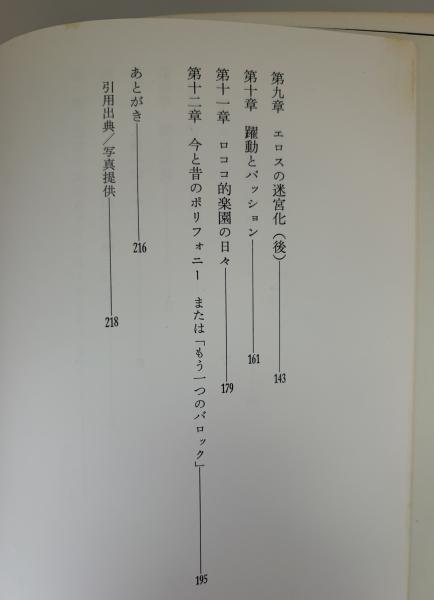 第九章 エロスの迷宮化（後）――143
第十章 躍動とパッション――161
第十一章 ロココ的楽園の日々――179
第十二章 今と昔のポリフォニー または「もう一つのバロック」――195
あとがき――216
引用出典／写真提供――218